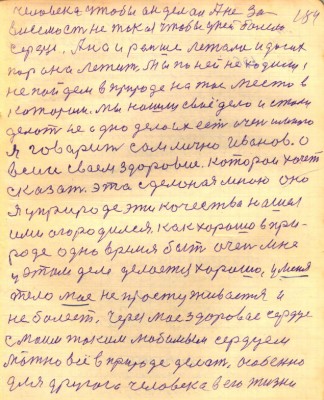 человека чтобы он делал А не за- 184
висемость не така чтобы у ней болело
сердце. Ана и ранше летала и до сих
пор она летит. Мы по ней не ходили,
не пойдем в природе на тое место в
котором. мы нашли своё дело и стали
делат не одно дело их ест очен много
Я говорит сам лично Иванов. о
всем своем здоровие. которои хочет
сказат. эта сделоная мною оно
Я у природе эти качества нашол
ими огородился. как хорошо в при-
роде одно время быт очен мне
у этом деле делается хорошо, у меня
тело мое не простуживается и
не болеет. Через мое здоровае сердце
с моим таким любимым сердцем
можно всё в природе делат, особенно
для другого человека в его жизни